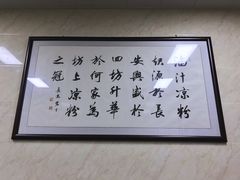 汁凉粉
源於長
安興盛於
回坊升華
於何家為
坊上凉粉
之冠